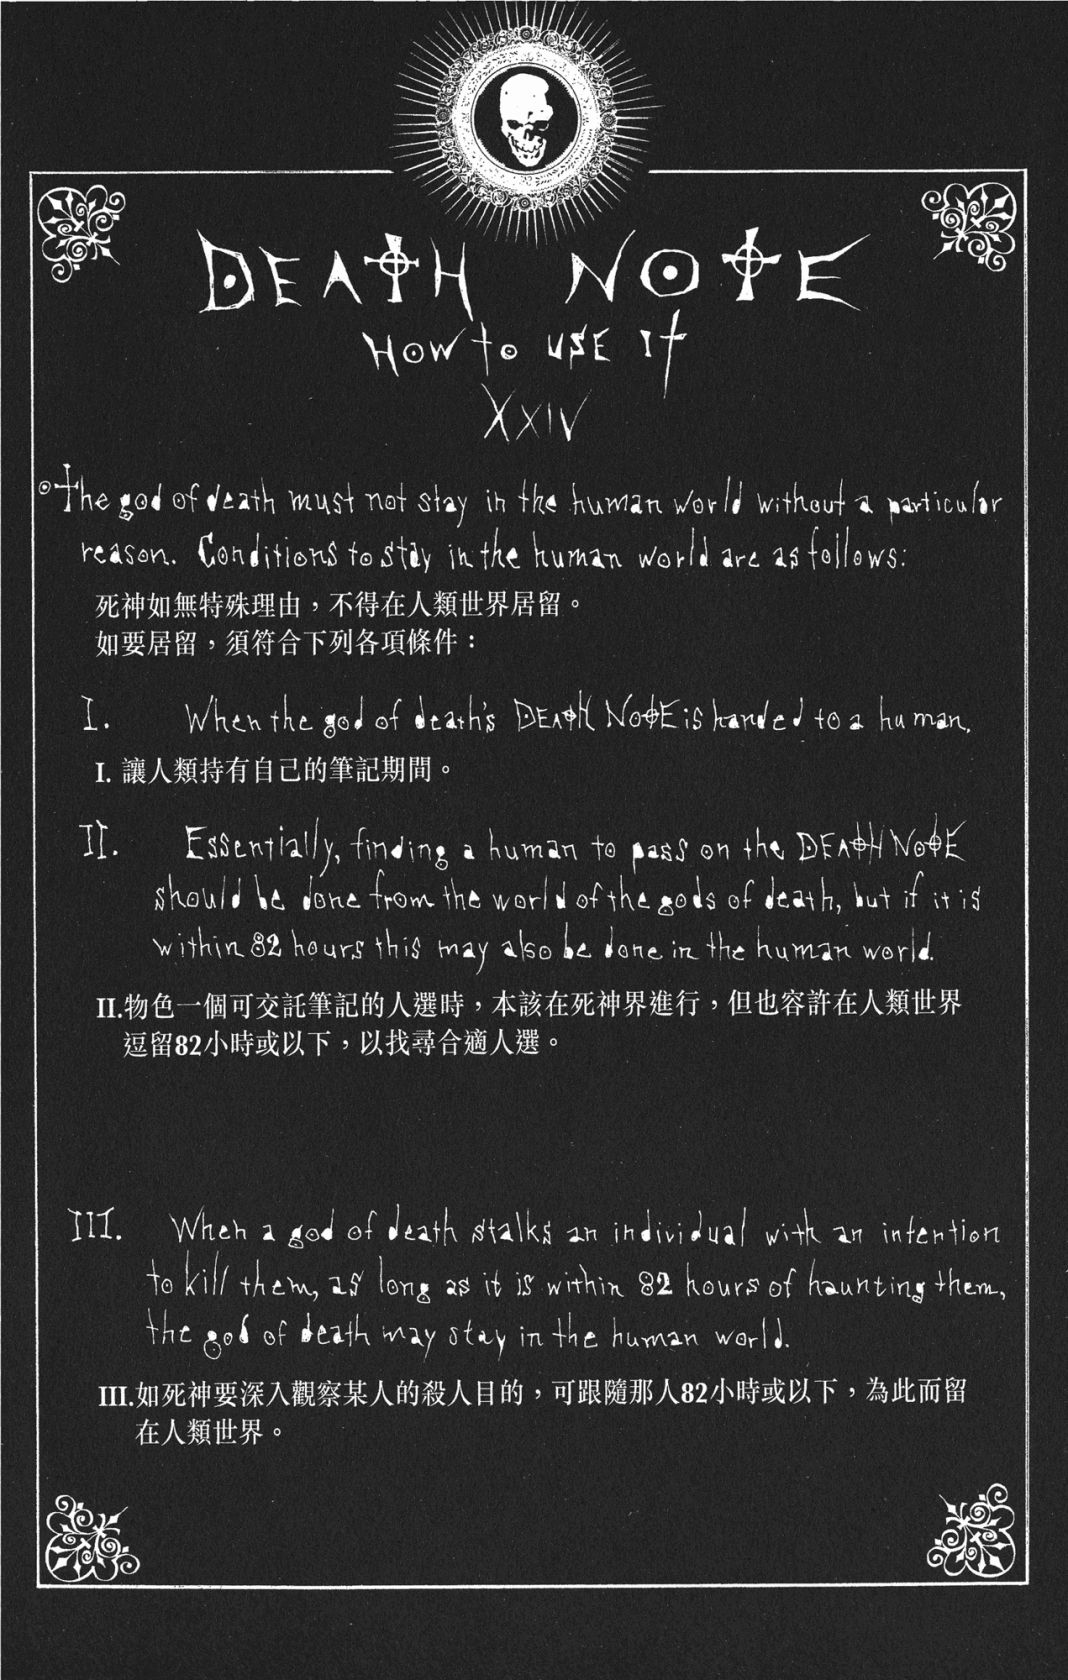 DEATH NOTE
HOW to USE It
XXIV
The god of death must not stay in the human world without a particular
reason. Conditions to stay in the human world are as follows:
死神如無特殊理由，不得在人類世界居留。
如要居留，須符合下列各項條件：
I. When the god of death's DEATH NOTE is handed to a human.
I. 讓人類持有自己的筆記期間。
II. Essentially, finding a human to pass on the DEATH NOTE
should be done from the world of the gods of death, but if it is
within 82 hours this may also be done in the human world.
II.物色一個可交託筆記的人選時，本該在死神界進行，但也容許在人類世界
逗留82小時或以下，以找尋合適人選。
III. When a god of death stalks an individual with an intention
to kill them, as long as it is within 82 hours of haunting them,
the god of death may stay in the human world.
III.如死神要深入觀察某人的殺人目的，可跟隨那人82小時或以下，為此而留
在人類世界。